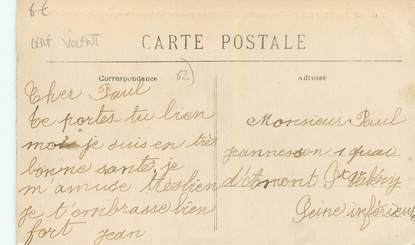 6€
CERF VOLANT
CARTE POSTALE
Correspondance
62)
Adresse
Cher Paul
te portes-tu bien
moi je suis en très
bonne santé, je
m'amuse très bien
je t'embrasse bien
fort Jean
Monsieur Paul
Jeannesson 1 quai
d'Aumont St Valéry
Seine inférieure